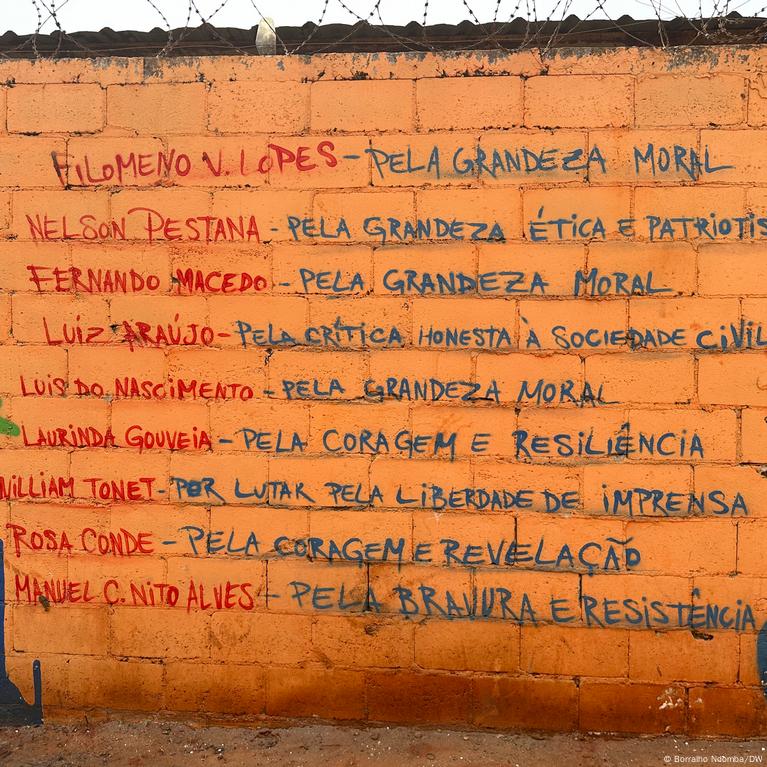 FILOMENO V. LOPES - PELA GRANDEZA MORAL
NELSON PESTANA - PELA GRANDEZA ÉTICA E PATRIOTIS
FERNANDO MACEDO - PELA GRANDEZA MORAL
LUIZ ARAÚJO - PELA CRÍTICA HONESTA À SOCIEDADE CIVIL
LUIS DO NASCIMENTO - PELA GRANDEZA MORAL
LAURINDA GOUVEIA - PELA CORAGEM E RESILIÊNCIA
WILLIAM TONET - POR LUTAR PELA LIBERDADE DE IMPRENSA
ROSA CONDE - PELA CORAGEM E REVELAÇÃO
MANUEL C. NITO ALVES - PELA BRAVURA E RESISTÊNCIA
© Borralho Ndomba/DW